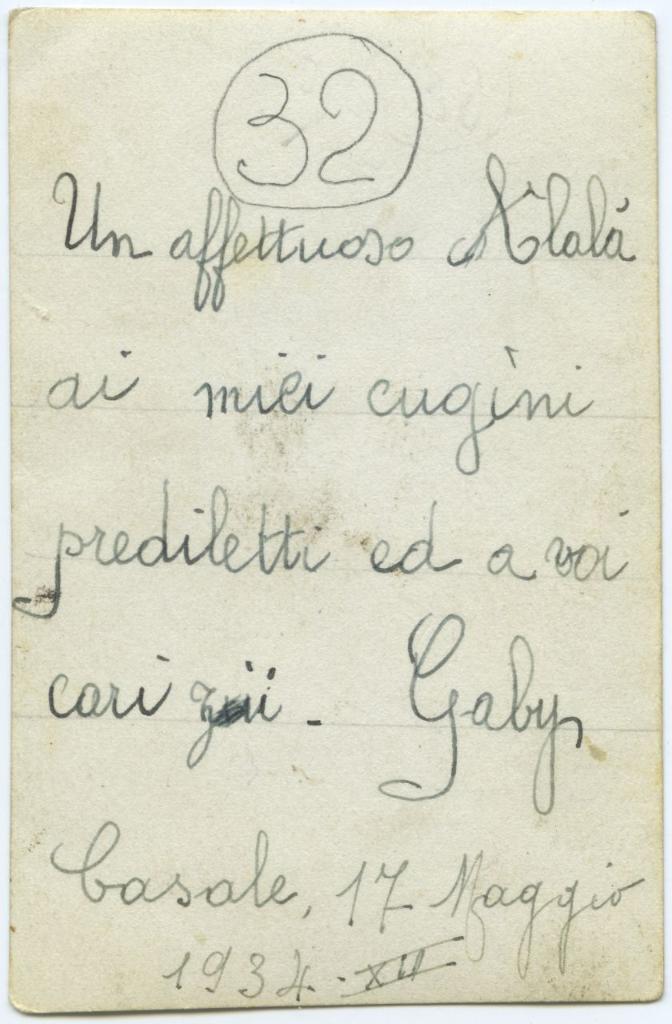 32
Un affettuoso Alalà
ai miei cugini
prediletti ed a voi
cari zii. Gaby
Casale, 17 Maggio
1934. XII